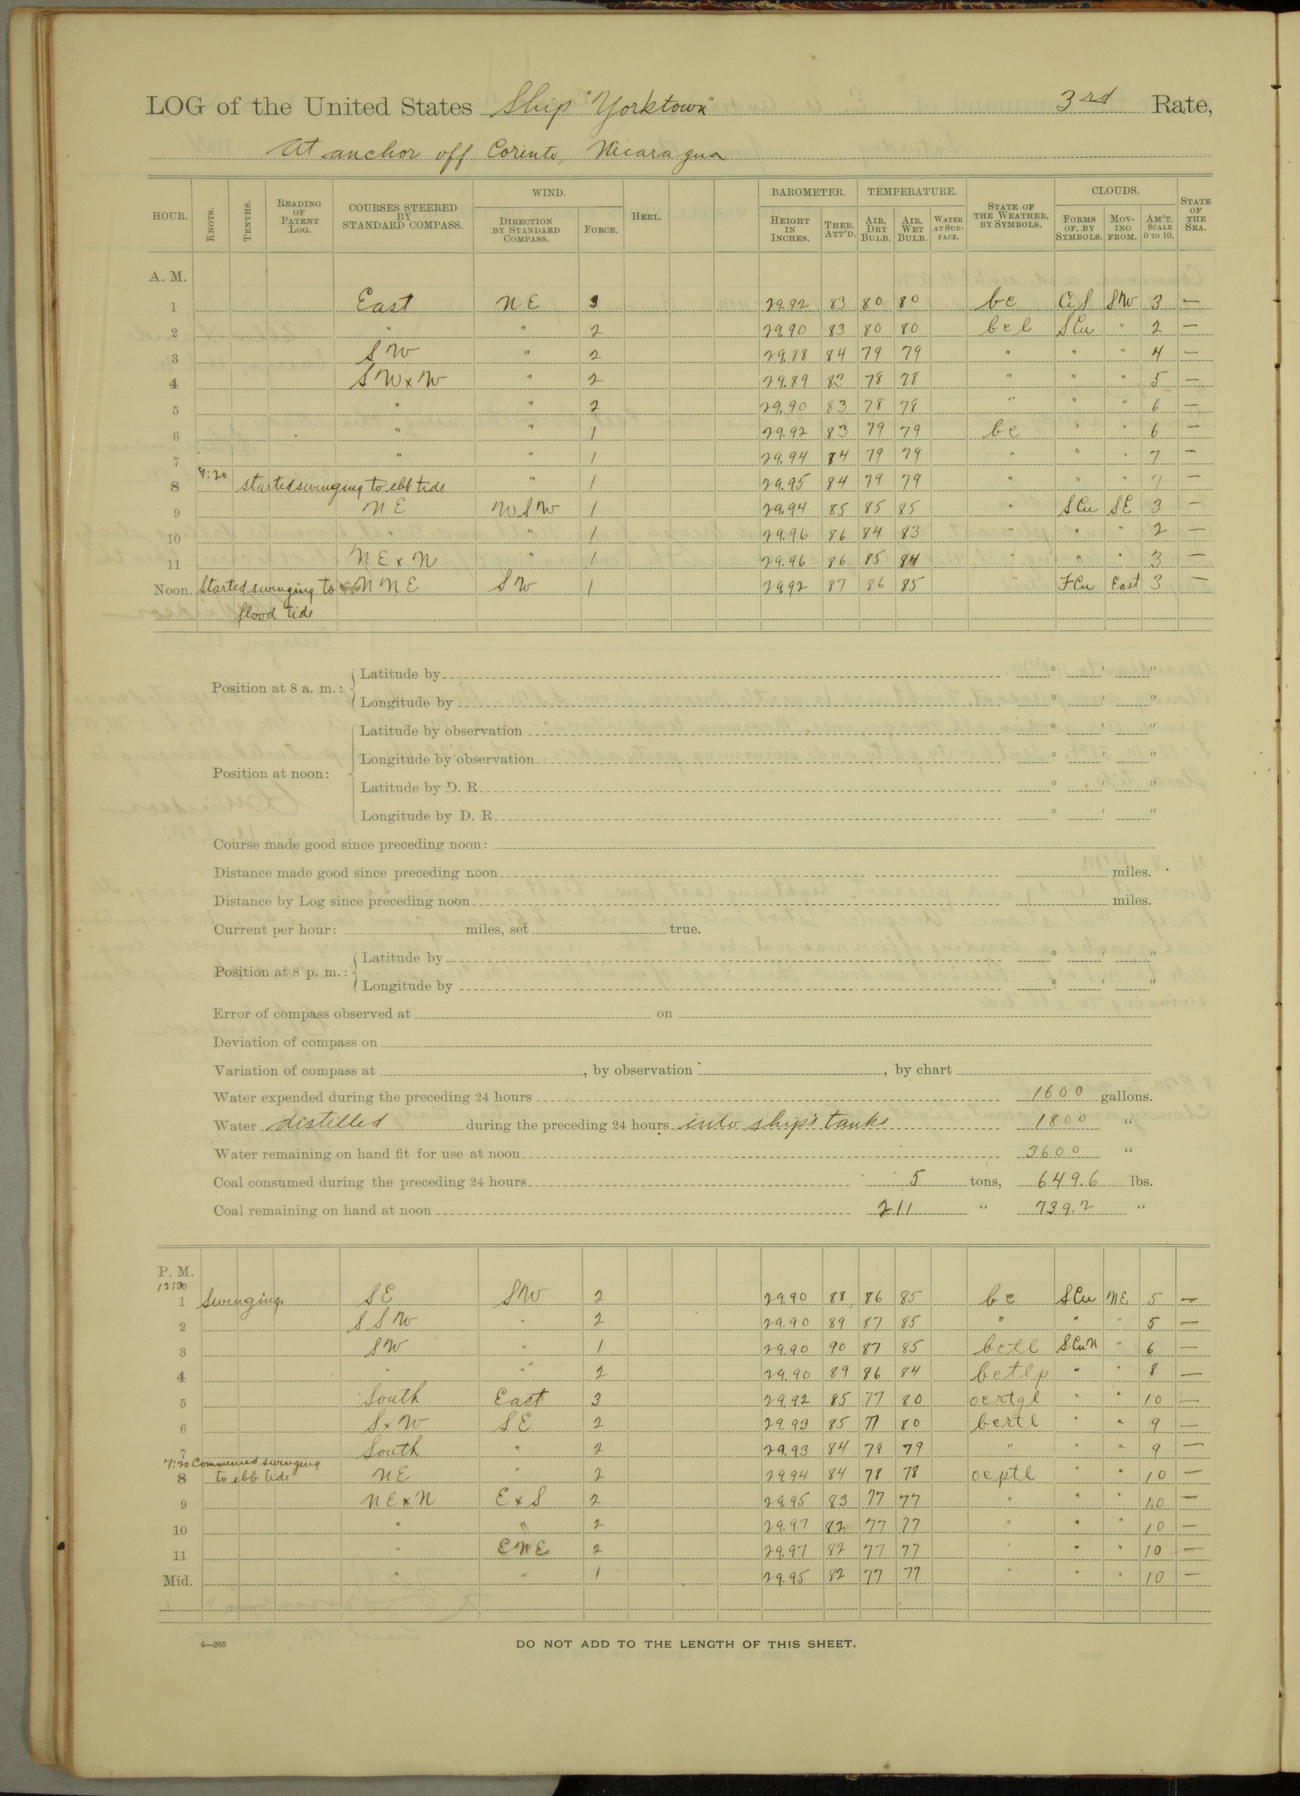 LOG of the United States Ship "Yorktown" 3rd Rate,
At anchor off Corinto, Nicaragua
HOUR. KNOTS. TENTHS. READING OF PATENT LOG. COURSES STEERED BY STANDARD COMPASS. WIND. DIRECTION BY STANDARD COMPASS. FORCE. HEEL. BAROMETER. HEIGHT IN INCHES. THER. ATT'D. TEMPERATURE. AIR, DRY BULB. AIR, WET BULB. WATER AT SURFACE. STATE OF THE WEATHER, BY SYMBOLS. CLOUDS. FORMS OF, BY SYMBOLS. MOVING FROM. AM'T. SCALE 0 TO 10. STATE OF THE SEA.
A. M.
1 East NE 3 29.92 83 80 80 bc Ci S SW 3 —
2 " " 2 29.90 83 80 80 bcl SCu " 2 —
3 SW " 2 29.88 84 79 79 " " " 4 —
4 SWxW " 2 29.89 83 78 78 " " " 5 —
5 " " 2 29.90 83 78 78 " " " 6 —
6 " " 1 29.92 83 79 79 bc " " 6 —
7 " " 1 29.94 84 79 79 " " " 7 —
8 7:20 started swinging to ebb tide " 1 29.95 84 79 79 " " " 7 —
9 NE WSW 1 29.94 85 85 85 " SCu SE 3 —
10 " " 1 29.96 86 84 83 " " " 2 —
11 NExN " 1 29.96 86 85 84 " " " 3 —
Noon. Started swinging to NNE SW 1 29.92 87 86 85 " FCu East 3 —
flood tide
Position at 8 a. m.: Latitude by ° ′ ″
Longitude by ° ′ ″
Position at noon: Latitude by observation ° ′ ″
Longitude by observation ° ′ ″
Latitude by D. R. ° ′ ″
Longitude by D. R. ° ′ ″
Course made good since preceding noon:
Distance made good since preceding noon miles.
Distance by Log since preceding noon miles.
Current per hour: miles, set true.
Position at 8 p. m.: Latitude by ° ′ ″
Longitude by ° ′ ″
Error of compass observed at on
Deviation of compass on
Variation of compass at , by observation , by chart
Water expended during the preceding 24 hours 1600 gallons.
Water distilled during the preceding 24 hours into ship's tanks 1800 "
Water remaining on hand fit for use at noon 3600 "
Coal consumed during the preceding 24 hours 5 tons, 649.6 lbs.
Coal remaining on hand at noon 211 " 739.2 "
P. M.
12:20
1 Swinging. SE SW 2 29.90 88 86 85 bc SCu NE 5 —
2 SSW " 2 29.90 89 87 85 " " " 5 —
3 SW " 1 29.90 90 87 85 bctl SCuN " 6 —
4 " " 2 29.90 89 86 84 bctlp " " 8 —
5 South East 3 29.92 85 77 80 ocrtql " " 10 —
6 SxW SE 2 29.93 85 77 80 bcrtl " " 9 —
7 South " 2 29.93 84 79 79 " " " 9 —
7:20 Commenced swinging
8 to ebb tide NE " 2 29.94 84 78 78 ocptl " " 10 —
9 NExN ExS 2 29.95 83 77 77 " " " 10 —
10 " " 2 29.97 82 77 77 " " " 10 —
11 " ENE 2 29.97 82 77 77 " " " 10 —
Mid. " " 1 29.95 82 77 77 " " " 10 —
4—265 DO NOT ADD TO THE LENGTH OF THIS SHEET.